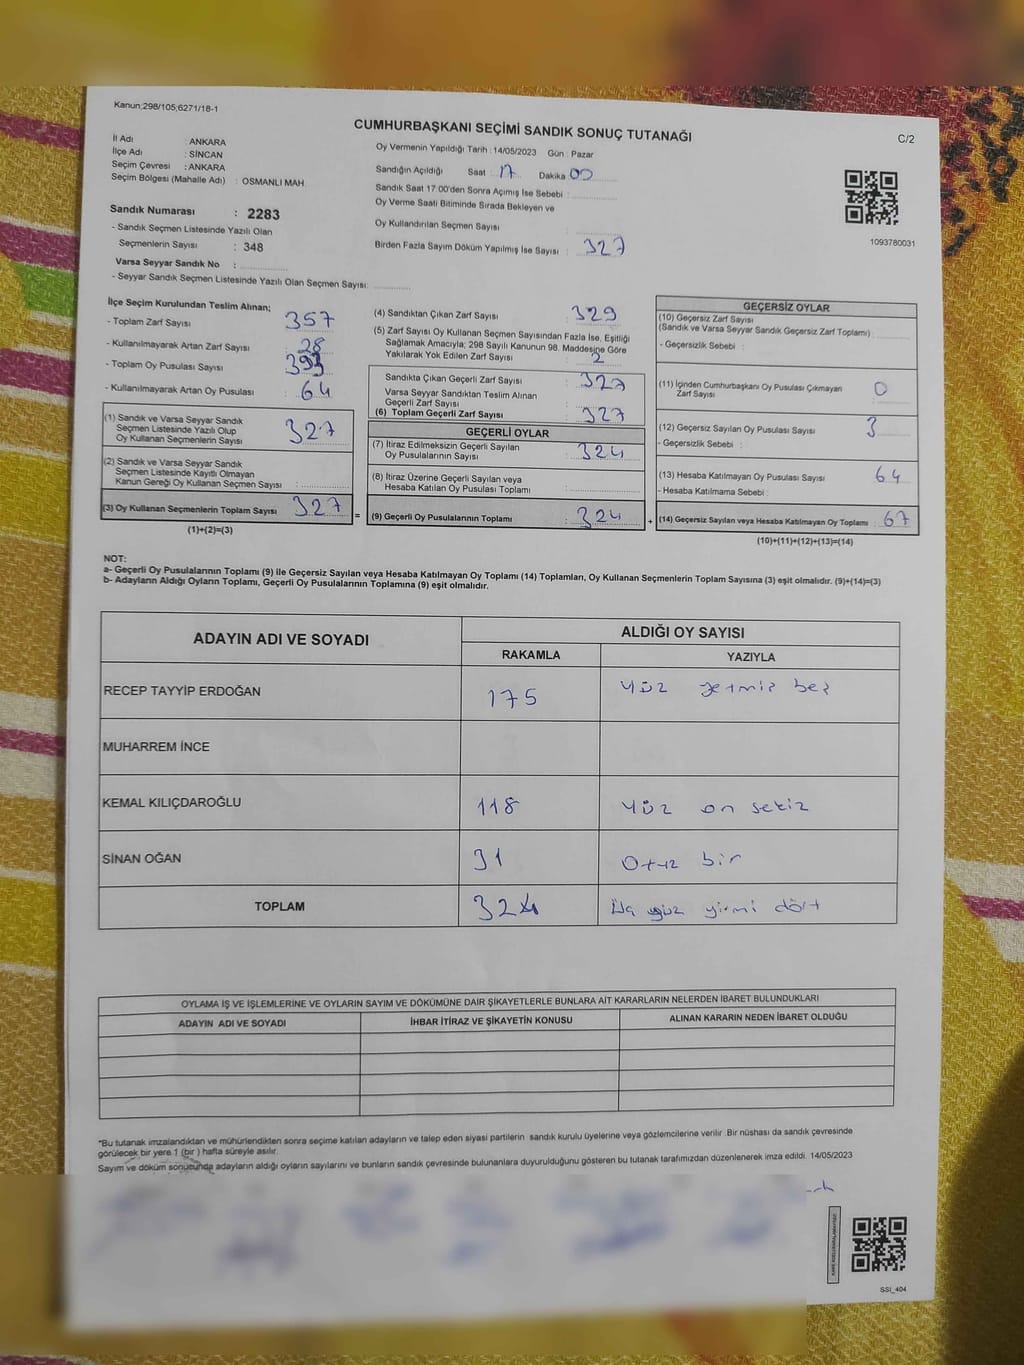 Kanun;298/105;6271/18-1
CUMHURBAŞKANI SEÇİMİ SANDIK SONUÇ TUTANAĞI
C/2
İl Adı : ANKARA
İlçe Adı : SİNCAN
Seçim Çevresi : ANKARA
Seçim Bölgesi (Mahalle Adı) : OSMANLI MAH.
Sandık Numarası : 2283
- Sandık Seçmen Listesinde Yazılı Olan
Seçmenlerin Sayısı : 348
Varsa Seyyar Sandık No :
- Seyyar Sandık Seçmen Listesinde Yazılı Olan Seçmen Sayısı:
Oy Vermenin Yapıldığı Tarih : 14/05/2023 Gün : Pazar
Sandığın Açıldığı Saat : 17 Dakika 00
Sandık Saat 17.00'den Sonra Açımış İse Sebebi :
Oy Verme Saati Bitiminde Sırada Bekleyen ve
Oy Kullandırılan Seçmen Sayısı :
Birden Fazla Sayım Döküm Yapılmış İse Sayısı : 327
1093780031
İlçe Seçim Kurulundan Teslim Alınan;
- Toplam Zarf Sayısı : 357
- Kullanılmayarak Artan Zarf Sayısı : 28
- Toplam Oy Pusulası Sayısı :
- Kullanılmayarak Artan Oy Pusulası : 64
(1) Sandık ve Varsa Seyyar Sandık
Seçmen Listesinde Yazılı Olup
Oy Kullanan Seçmenlerin Sayısı : 327
(2) Sandık ve Varsa Seyyar Sandık
Seçmen Listesinde Kayıtlı Olmayan
Kanun Gereği Oy Kullanan Seçmen Sayısı :
(3) Oy Kullanan Seçmenlerin Toplam Sayısı : 327
(1)+(2)=(3)
(4) Sandıktan Çıkan Zarf Sayısı : 329
(5) Zarf Sayısı Oy Kullanan Seçmen Sayısından Fazla İse, Eşitliği
Sağlamak Amacıyla; 298 Sayılı Kanunun 98. Maddesine Göre
Yakılarak Yok Edilen Zarf Sayısı : 2
Sandıkta Çıkan Geçerli Zarf Sayısı : 327
Varsa Seyyar Sandıktan Teslim Alınan
Geçerli Zarf Sayısı :
(6) Toplam Geçerli Zarf Sayısı : 327
GEÇERLİ OYLAR
(7) İtiraz Edilmeksizin Geçerli Sayılan
Oy Pusulalarının Sayısı : 324
(8) İtiraz Üzerine Geçerli Sayılan veya
Hesaba Katılan Oy Pusulası Toplamı :
= (9) Geçerli Oy Pusulalarının Toplamı : 324
GEÇERSİZ OYLAR
(10) Geçersiz Zarf Sayısı
(Sandık ve Varsa Seyyar Sandık Geçersiz Zarf Toplamı) :
- Geçersizlik Sebebi :
(11) İçinden Cumhurbaşkanı Oy Pusulası Çıkmayan
Zarf Sayısı : 0
(12) Geçersiz Sayılan Oy Pusulası Sayısı : 3
- Geçersizlik Sebebi :
(13) Hesaba Katılmayan Oy Pusulası Sayısı : 64
- Hesaba Katılmama Sebebi :
+ (14) Geçersiz Sayılan veya Hesaba Katılmayan Oy Toplamı : 67
(10)+(11)+(12)+(13)=(14)
NOT:
a- Geçerli Oy Pusulalarının Toplamı (9) ile Geçersiz Sayılan veya Hesaba Katılmayan Oy Toplamı (14) Toplamları, Oy Kullanan Seçmenlerin Toplam Sayısına (3) eşit olmalıdır. (9)+(14)=(3)
b- Adayların Aldığı Oyların Toplamı, Geçerli Oy Pusulalarının Toplamına (9) eşit olmalıdır.
ADAYIN ADI VE SOYADI
ALDIĞI OY SAYISI
RAKAMLA YAZIYLA
RECEP TAYYİP ERDOĞAN 175 Yüz yetmiş beş
MUHARREM İNCE
KEMAL KILIÇDAROĞLU 118 Yüz on sekiz
SİNAN OĞAN 31 Otuz bir
TOPLAM 324 Üç yüz yirmi dört
OYLAMA İŞ VE İŞLEMLERİNE VE OYLARIN SAYIM VE DÖKÜMÜNE DAİR ŞİKAYETLERLE BUNLARA AİT KARARLARIN NELERDEN İBARET BULUNDUKLARI
ADAYIN ADI VE SOYADI İHBAR İTİRAZ VE ŞİKAYETİN KONUSU ALINAN KARARIN NEDEN İBARET OLDUĞU
*Bu tutanak imzalandıktan ve mühürlendikten sonra seçime katılan adayların ve talep eden siyasi partilerin sandık kurulu üyelerine veya gözlemcilerine verilir. Bir nüshası da sandık çevresinde
görülecek bir yere 1 (bir ) hafta süreyle asılır.
Sayım ve döküm sonucunda adayların aldığı oyların sayılarını ve bunların sandık çevresinde bulunanlara duyurulduğunu gösteren bu tutanak tarafımızdan düzenlenerek imza edildi. 14/05/2023
SSİ_404